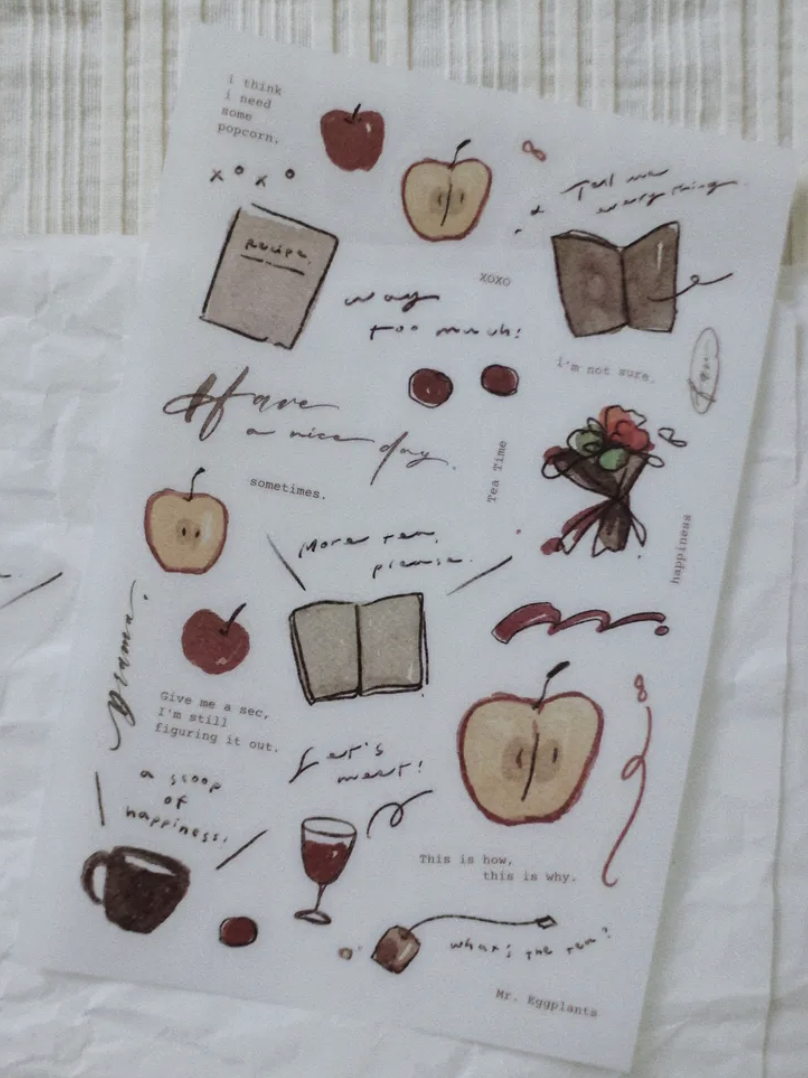 i think
i need
some
popcorn.
x o x o
Tell me
everything
recipe.
xoxo
way
too much!
i'm not sure.
Have
a nice day.
Tea Time
sometimes.
happiness
More tea,
please.
Drama.
Give me a sec,
I'm still
figuring it out.
Let's
meet!
a scoop
of
happiness.
This is how,
this is why.
what's the tea?
Mr. Eggplants